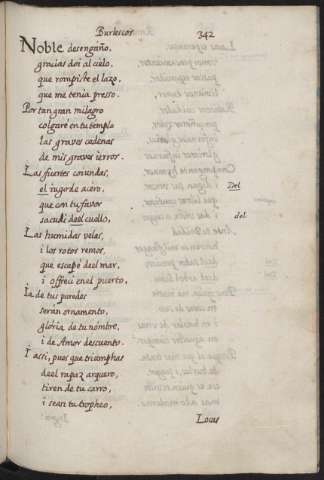 Burlescos
342
Noble desengaño,
gracias doi al cielo,
que rompiste el lazo,
que me tenia presso.
Por tan gran milagro
colgaré en tu templo
las graves cadenas
de mis graves ierros.
Las fuertes coiundas,
el iugo de acero,
Del
que con tu favor
sacudi deel cuello,
del.
Las humidas velas,
i los rotos remos,
que escapé deel mar,
i offreci en el puerto,
Ia de tus paredes
seran ornamento,
gloria de tu nombre,
i de Amor descuento.
I assi, pues que triumphas
deel rapaz arquero,
tiren de tu carro,
i sean tu tropheo,
Locas